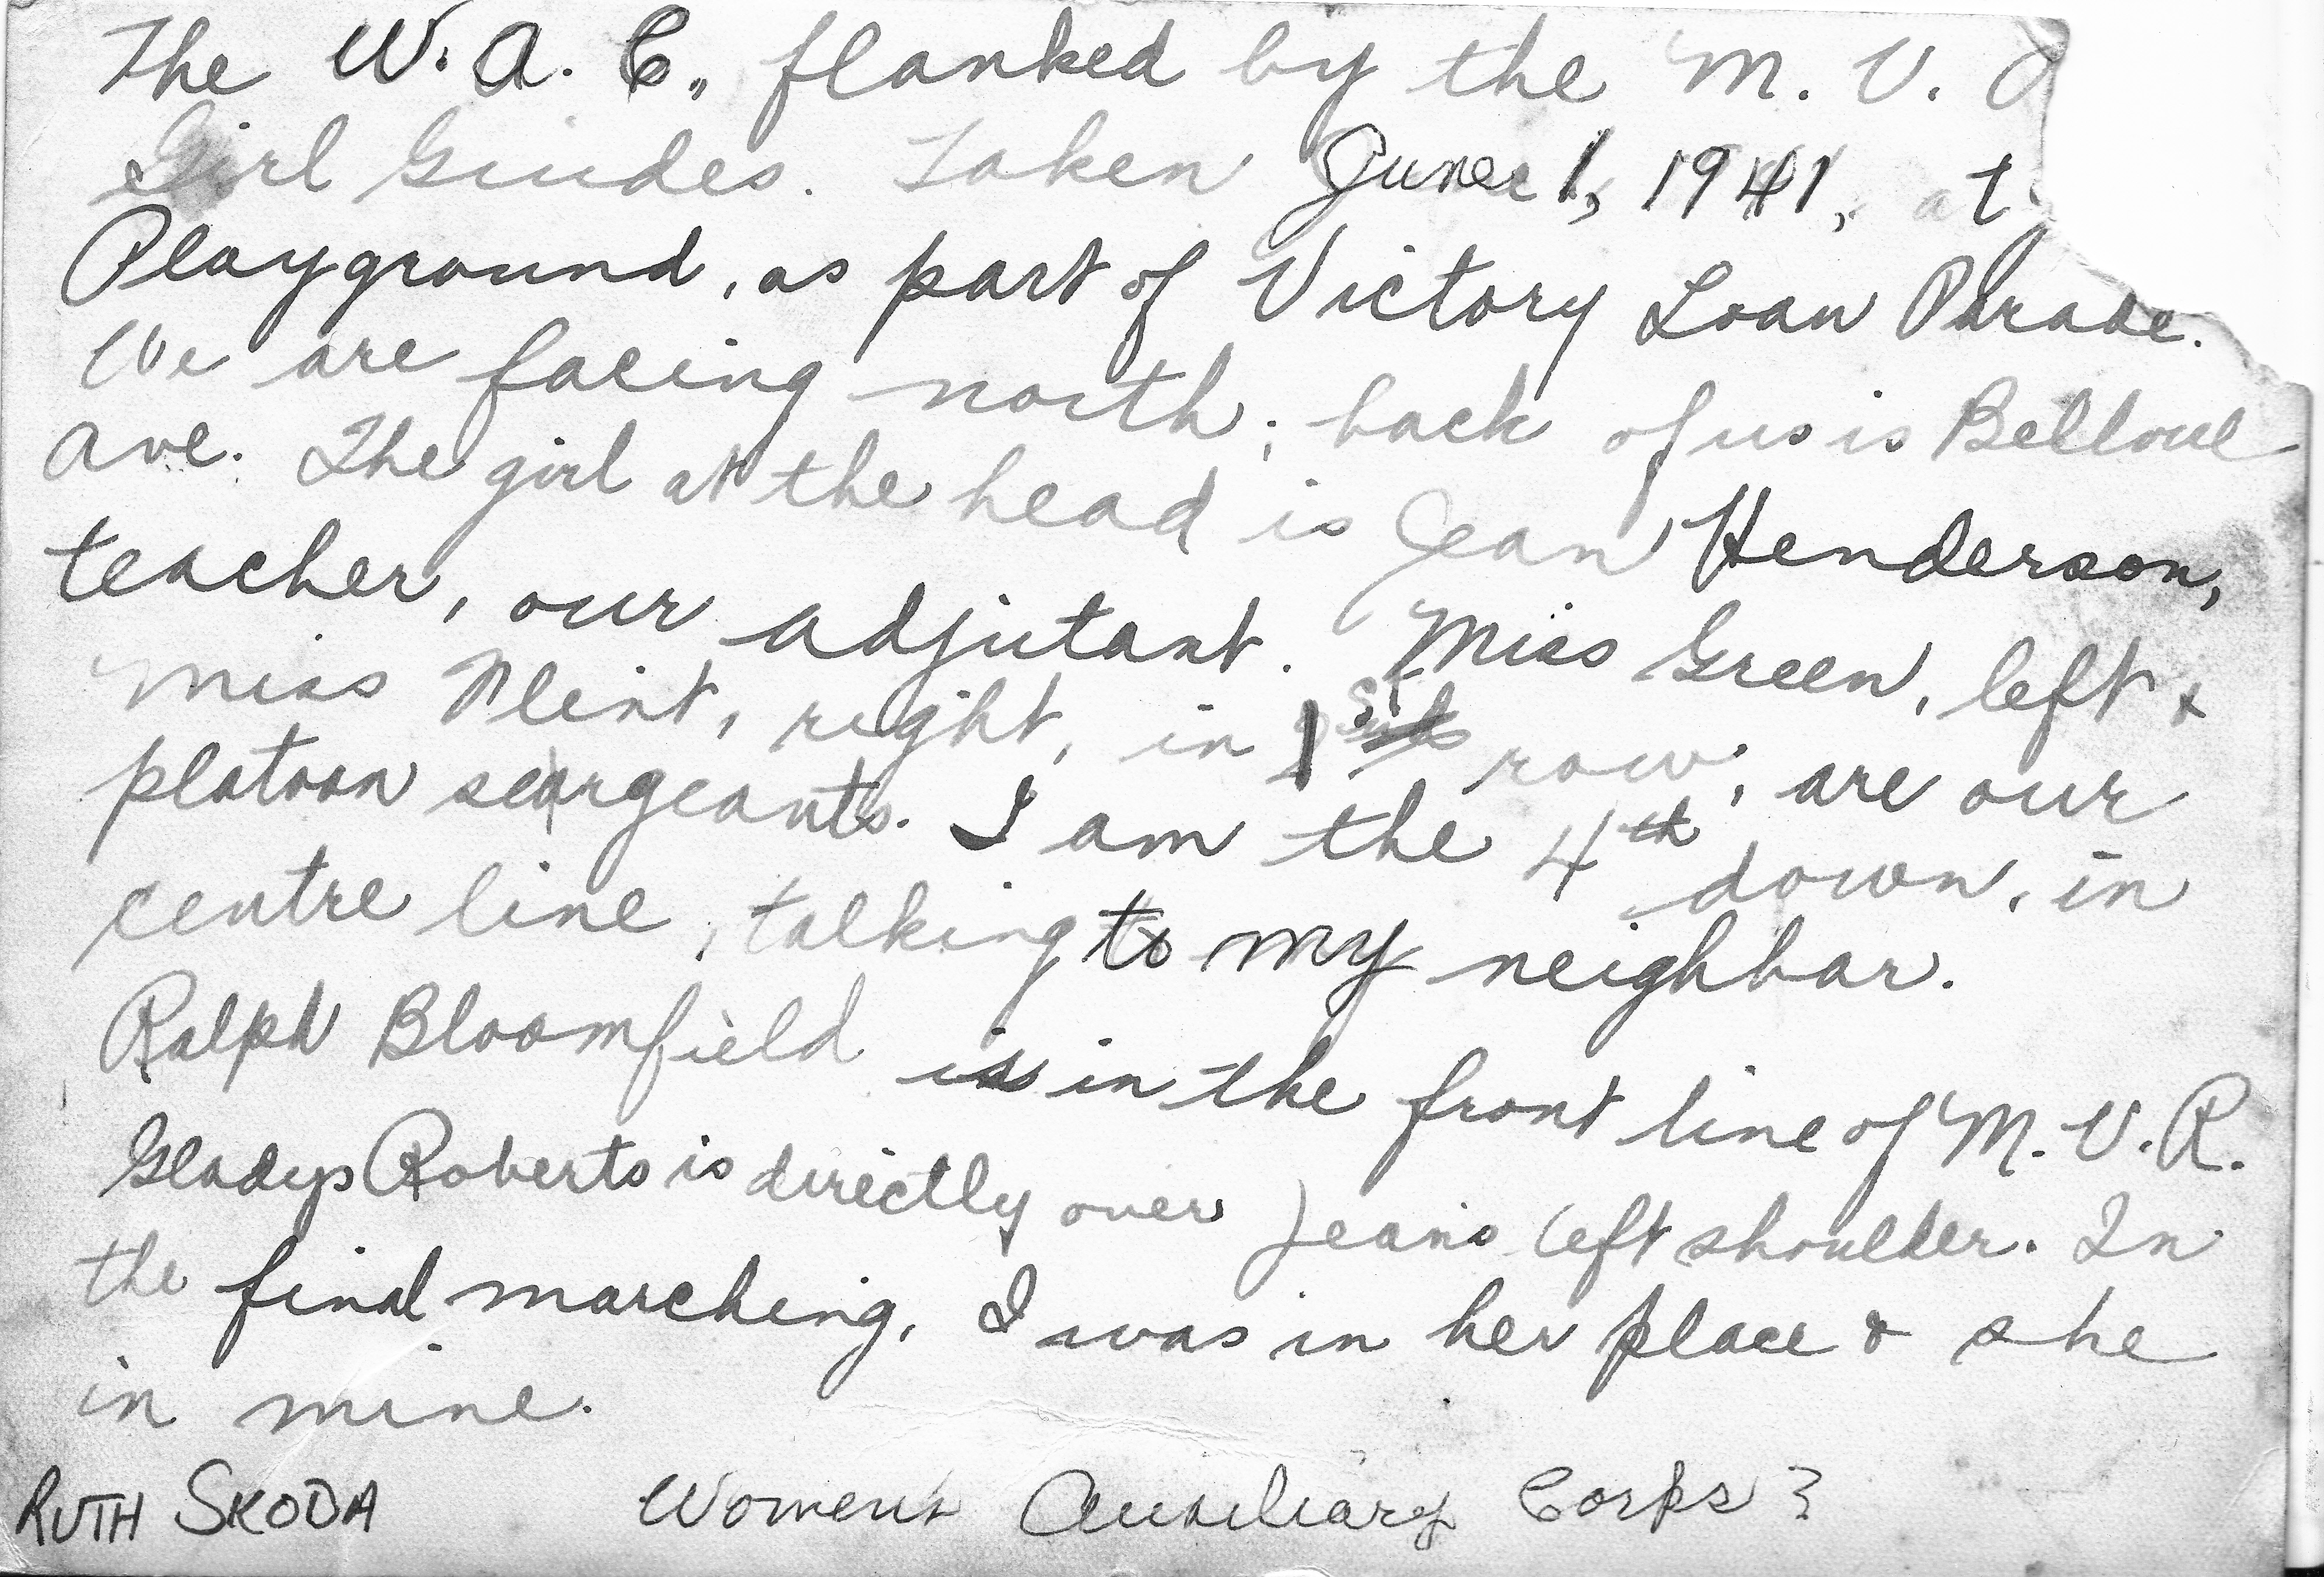 The W. A. C., flanked by the M. V.
Girl Guides. Taken June 1, 1941, at
Playground, as part of Victory Loan Parade.
We are facing north; back of us is Bellvue
Ave. The girl at the head is Jean Henderson,
teacher, our adjutant. Miss Green, left &
Miss Flint, right, in 1st row, are our
platoon seargeants. I am the 4th down, in
centre line, talking to my neighbor.
Ralph Bloomfield is in the front line of M. V. R.
Gladys Roberts is directly over Jean's left shoulder. In
the final marching, I was in her place & she
in mine.
RUTH SKODA Women's Auxiliary Corps?